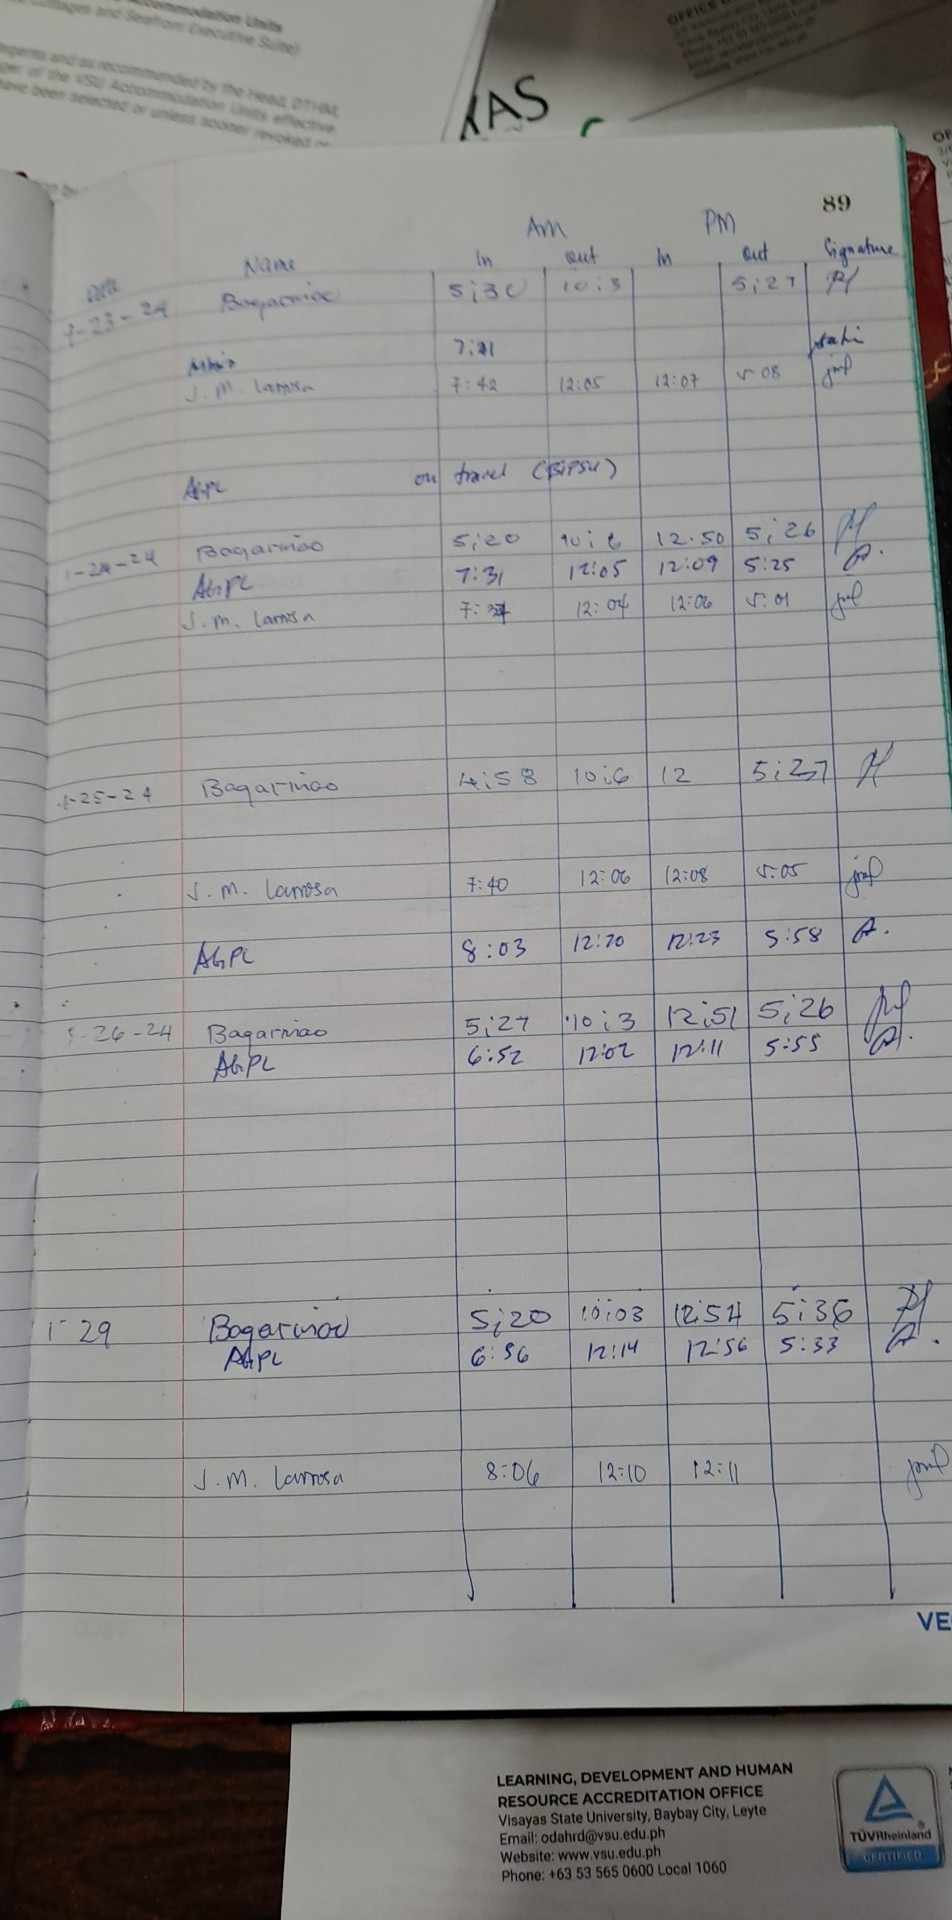 Accommodation Units
Cottages and Seafront Executive Suite)
and as recommended by the Head, DTHM,
of the VSU Accommodation Units effective
have been selected or unless sooner revoked or
OFFICE
AS
89
AM PM
Date Name In out In out Signature
-23-24 Bagarinao 5;30 10:3 5;27
7:21
J.M. Larrosa 7:42 12:05 12:07 5:08 jml
AGPL on travel (BiPSU)
-24-24 Bagarinao 5;20 10;6 12.50 5;26
AGPL 7:31 12:05 12:09 5:25 A.
J.M. Larrosa 7:37 12:04 12:06 5:01 jml
-25-24 Bagarinao 4;58 10;6 12 5;27
J.M. Larrosa 7:40 12:06 12:08 5:05 jml
AGPL 8:03 12:20 12:23 5:58 A.
-26-24 Bagarinao 5;27 10;3 12;51 5;26
AGPL 6:52 12:02 12:11 5:55 A.
29 Bagarinao 5;20 10:03 12:54 5;36
AGPL 6:56 12:14 12:56 5:33 A.
J.M. Larrosa 8:06 12:10 12:11 jml
VE
LEARNING, DEVELOPMENT AND HUMAN
RESOURCE ACCREDITATION OFFICE
Visayas State University, Baybay City, Leyte
Email: odahrd@vsu.edu.ph
Website: www.vsu.edu.ph
Phone: +63 53 565 0600 Local 1060
TÜVRheinland
CERTIFIED